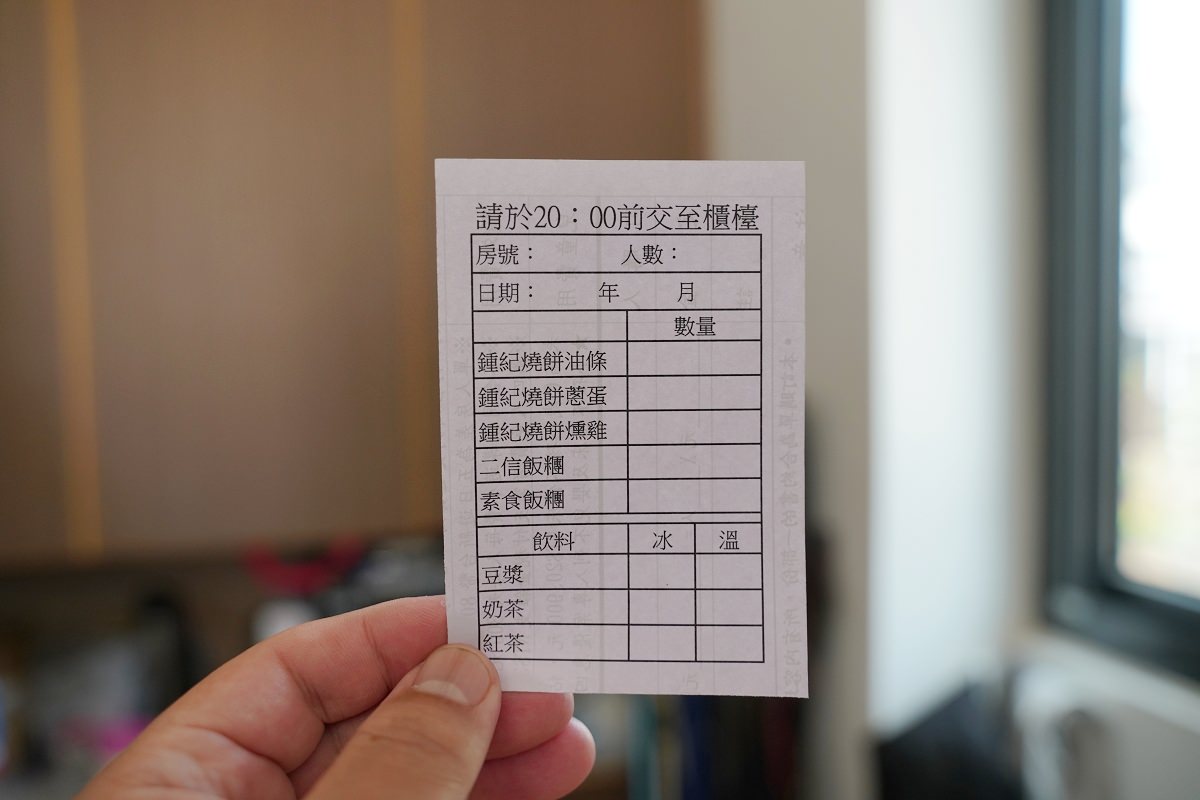 請於20：00前交至櫃檯
房號： 人數：
日期： 年 月
數量
鍾紀燒餅油條
鍾紀燒餅蔥蛋
鍾紀燒餅燻雞
二信飯糰
素食飯糰
飲料 冰 溫
豆漿
奶茶
紅茶